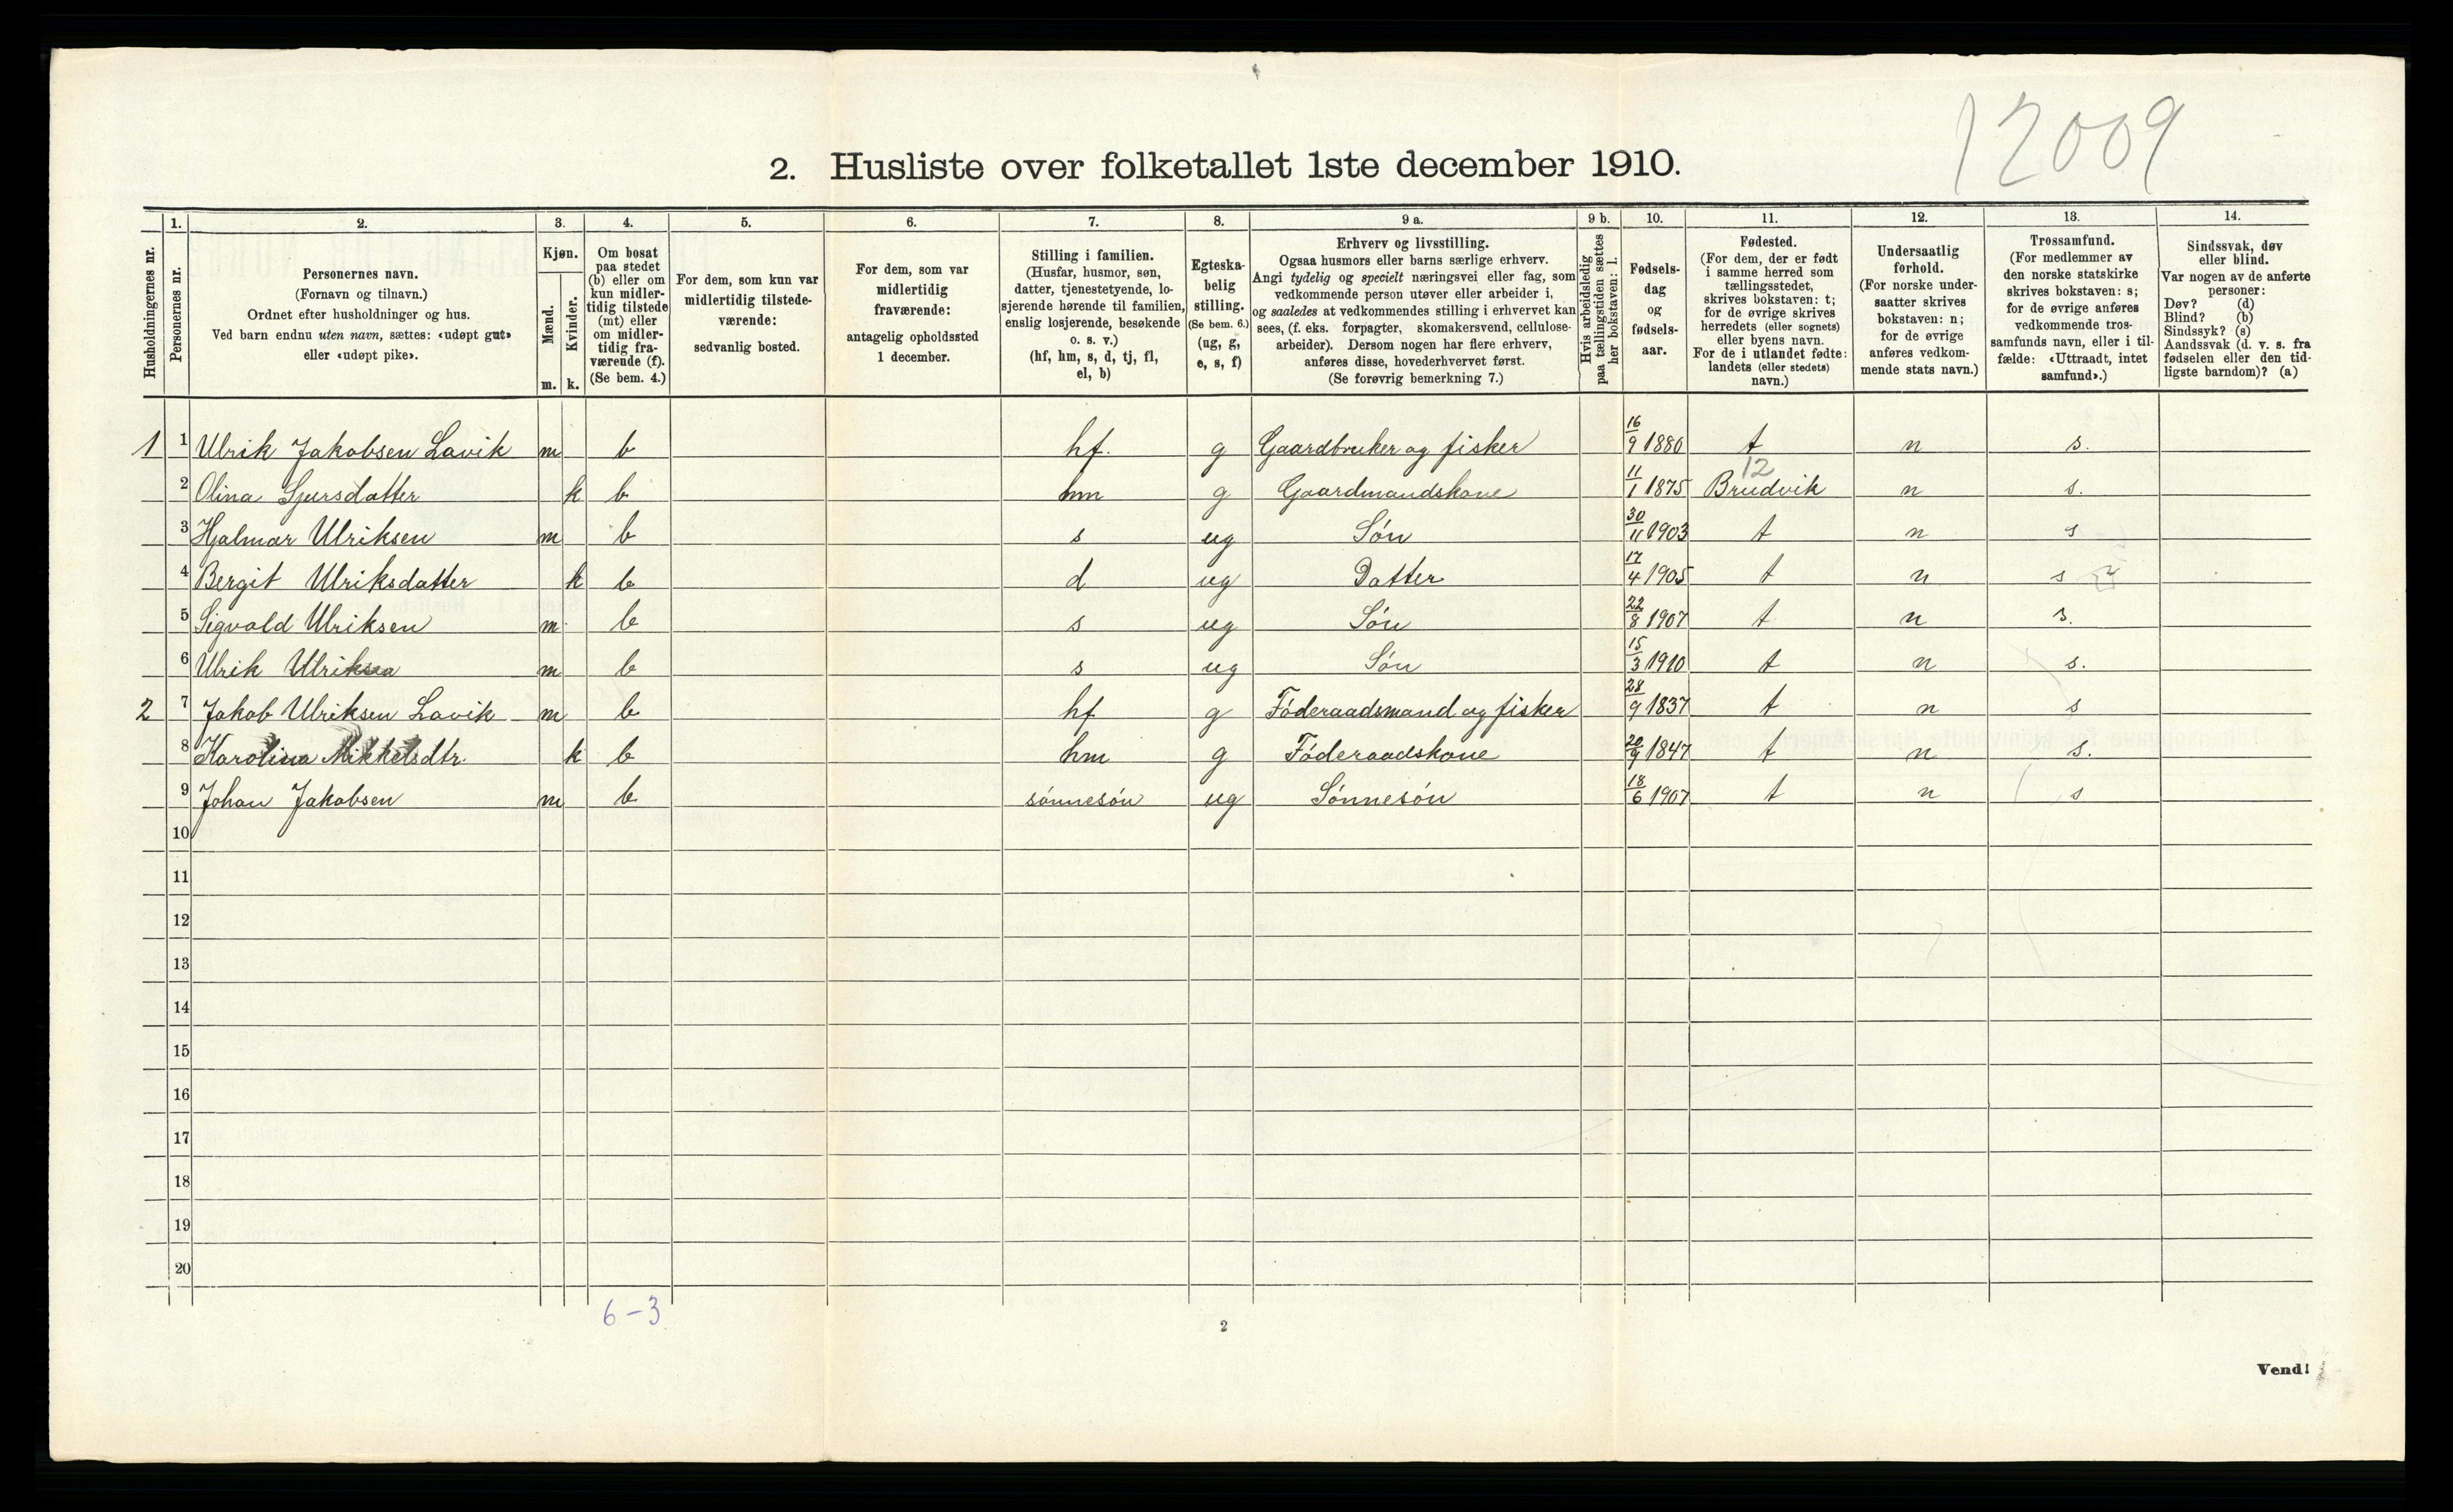 12009
2. Husliste over folketallet 1ste december 1910.
Husholdningernes nr.
1.
Personernes nr.
2.
Personernes navn.
(Fornavn og tilnavn.)
Ordnet efter husholdninger og hus.
Ved barn endnu uten navn, sættes: «udøpt gut»
eller «udøpt pike».
3.
Kjøn.
Mænd.
Kvinder.
m.
k.
4.
Om bosat
paa stedet
(b) eller om
kun midler-
tidig tilstede
(mt) eller
om midler-
tidig fra-
værende (f).
(Se bem. 4.)
5.
For dem, som kun var
midlertidig tilstede-
værende:
sedvanlig bosted.
6.
For dem, som var
midlertidig
fraværende:
antagelig opholdssted
1 december.
7.
Stilling i familien.
(Husfar, husmor, søn,
datter, tjenestetyende, lo-
sjerende hørende til familien,
enslig losjerende, besøkende
o. s. v.)
(hf, hm, s, d, tj, fl,
el, b)
8.
Egteska-
belig
stilling.
(Se bem. 6.)
(ug, g,
e, s, f)
9 a.
Erhverv og livsstilling.
Ogsaa husmors eller barns særlige erhverv.
Angi tydelig og specielt næringsvei eller fag, som
vedkommende person utøver eller arbeider i,
og saaledes at vedkommendes stilling i erhvervet kan
sees, (f. eks. forpagter, skomakersvend, cellulose-
arbeider). Dersom nogen har flere erhverv,
anføres disse, hovederhvervet først.
(Se forøvrig bemerkning 7.)
9 b.
Hvis arbeidsledig
paa tællingstiden sættes
her bokstaven: l.
10.
Fødsels-
dag
og
fødsels-
aar.
11.
Fødested.
(For dem, der er født
i samme herred som
tællingsstedet,
skrives bokstaven: t;
for de øvrige skrives
herredets (eller sognets)
eller byens navn.
For de i utlandet fødte:
landets (eller stedets)
navn.)
12.
Undersaatlig
forhold.
(For norske under-
saatter skrives
bokstaven: n;
for de øvrige
anføres vedkom-
mende stats navn.)
13.
Trossamfund.
(For medlemmer av
den norske statskirke
skrives bokstaven: s;
for de øvrige anføres
vedkommende tros-
samfunds navn, eller i til-
fælde: «Uttraadt, intet
samfund».)
14.
Sindssvak, døv
eller blind.
Var nogen av de anførte
personer:
Døv? (d)
Blind? (b)
Sindssyk? (s)
Aandssvak (d. v. s. fra
fødselen eller den tid-
ligste barndom)? (a)
1 1 Ulrik Jakobsen Lavik m b hf. g Gaardbruker og fisker 16/9 1880 t n s.
12
2 Olina Sjursdatter k b hm g Gaardmandskone 11/1 1875 Brudvik n s.
3 Hjalmar Ulriksen m b s ug Søn 30/11 1903 t n s
4 Bergit Ulriksdatter k b d ug Datter 17/4 1905 t n s
5 Sigvald Ulriksen m b s ug Søn 22/8 1907 t n s.
6 Ulrik Ulriksen m b s ug Søn 15/3 1910 t n s.
2 7 Jakob Ulriksen Lavik m b hf g Føderaadsmand og fisker 28/9 1837 t n s
8 Karolina Mikkelsdtr. k b hm g Føderaadskone 20/9 1847 t n s.
9 Johan Jakobsen m b sønnesøn ug Sønnesøn 18/6 1907 t n s
10
11
12
13
14
15
16
17
18
19
20
6-3
2
Vend!